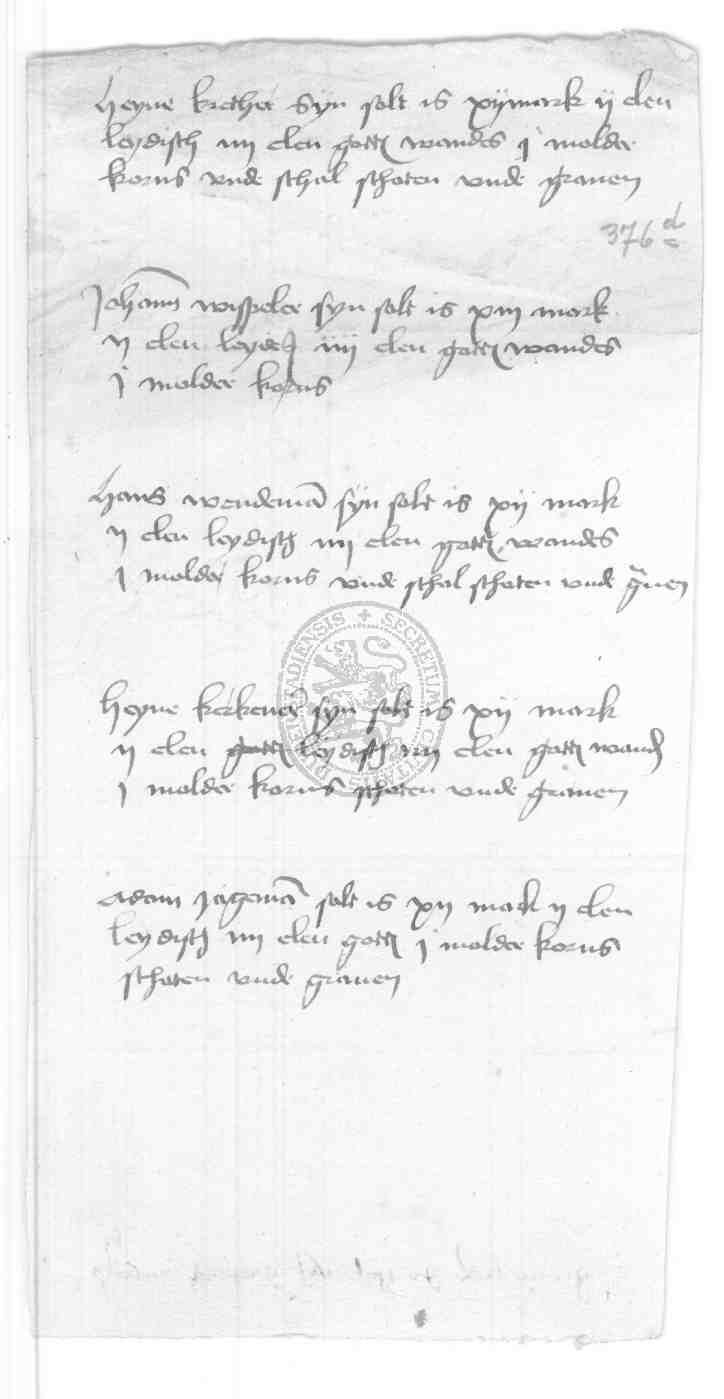 heyne kether syn solt is xij mark ij elen
leydisch iiij elen gottz wandes j molder
korns vnde schal schoten vnde grauen
376 d
Johann wispeler syn solt is xiij mark
ij elen leydesz iiij elen gottz wandes
j molder korns
hans wendemā syn solt is xij mark
ij elen leydisch iiij elen gottz wandes
j molder korns vnde schal schoten vnde grauen
heyne kerkener syn solt is xij mark
ij elen leydisch iiij elen gottz wand
j molder korns schoten vnde grauen
Adam Jagemā solt is xij mark ij elen
leydisch iiij elen gottz j molder korns
schoten vnde grauen
SECRETUM CIVITATIS